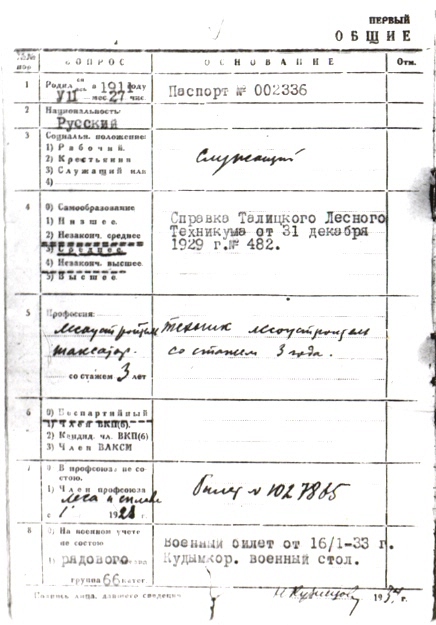 ПЕРВЫЙ
ОБЩИЕ
№№ ВОПРОС ОСНОВАНИЕ Отм.
1 Родил в 1911 году Паспорт № 002336
УП мес. 27 чис.
2 Национальность
Русский
3 Социальн. положение:
1) Рабочий. Служащий
2) Крестьянин
3) Служащий или
4)
4 0) Самообразование
1) Низшее. Справка Талицкого Лесного
2) Незаконч. среднее Техникума от 31 декабря
3) Среднее 1929 г.№ 482.
4) Незаконч. высшее.
5) Высшее.
5 Профессия:
лесоустроитель техник лесоустроитель
таксатор. со стажем 3 года.
со стажем 3 лет
6 0) Беспартийный
1) Член ВКП(б).
2) Кандид. чл. ВКП(б)
3) Член ВЛКСМ
7 0) В профсоюзе не со-
стою.
1) Член профсоюза билет № 1027865
леса и сплава
с 1 1928 г.
8 0) На военном учете
не состою Военный билет от 16/1-33 г.
1) рядового Кудымкор. военный стол.
группа 66 катег.
Подпись лица, давшего сведения И. Кузнецов 1934 г.